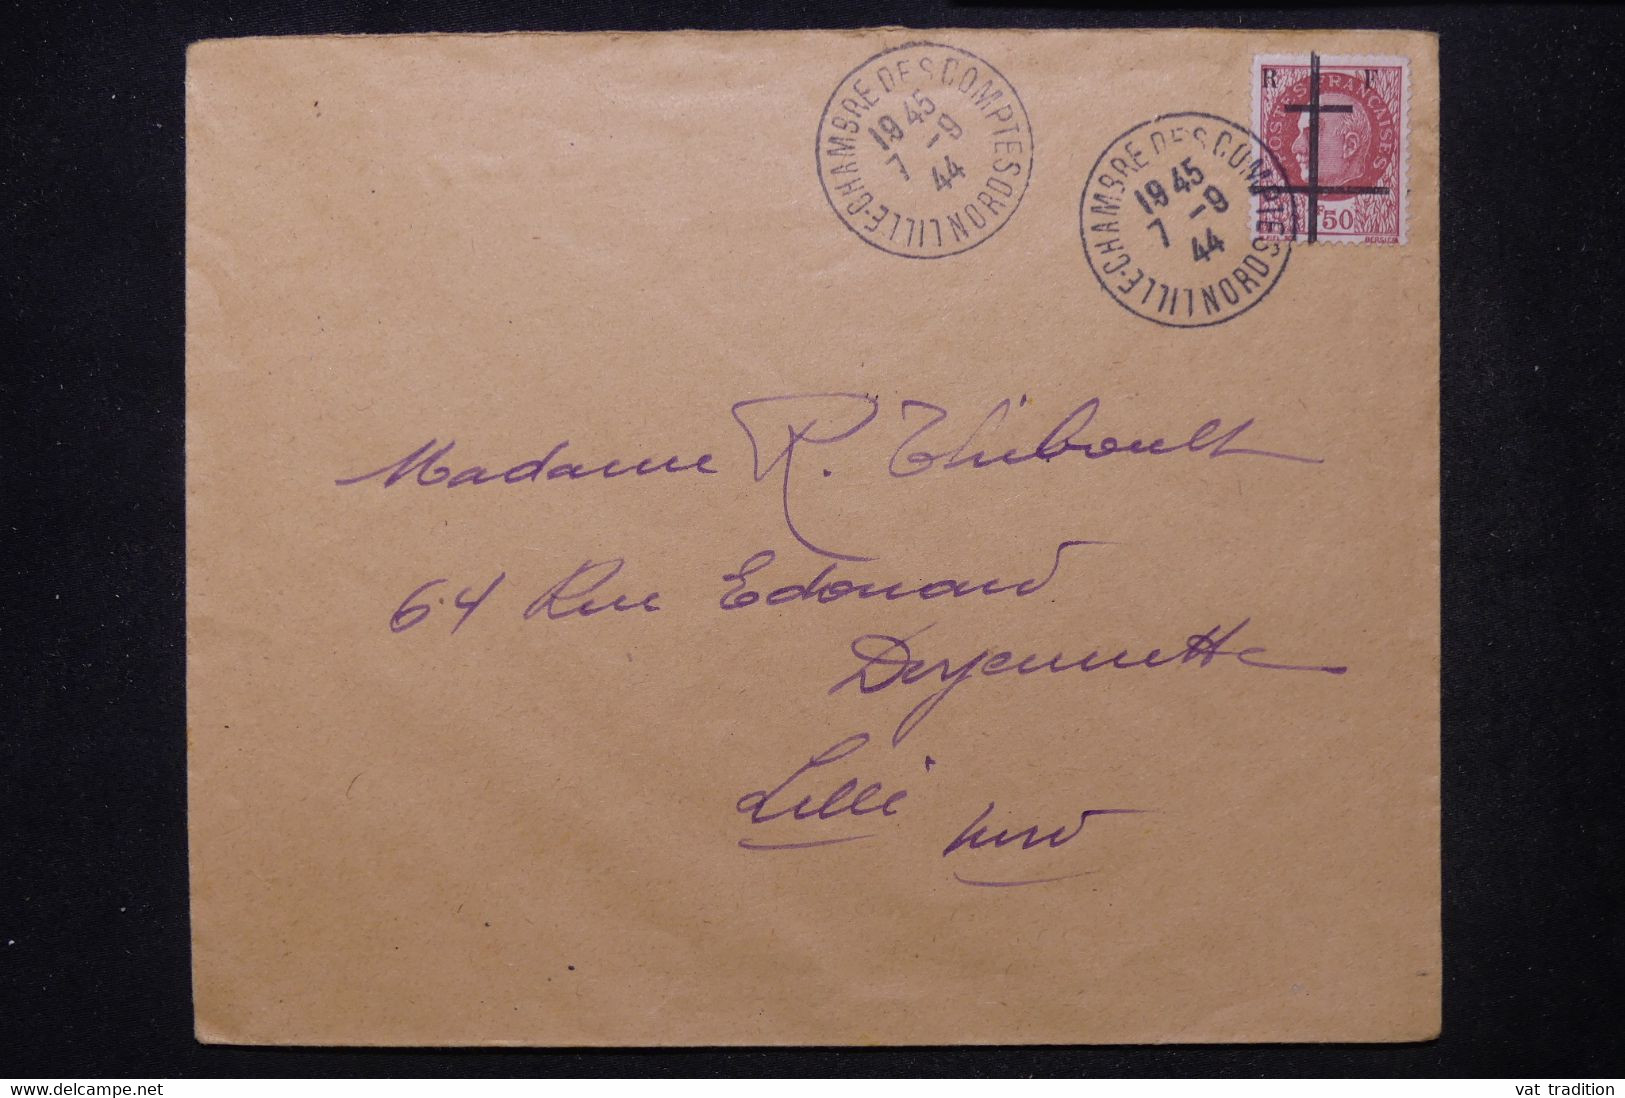 LILLE-CHAMBRE DES COMPTES
1945
7-9
44
NORD
LILLE-CHAMBRE DES COMPTES
1945
7-9
44
NORD
R F
POSTES FRANÇAISES
1F50
BERSIER
Madame R. Thiboult
64 Rue Edouard
Lille
www.delcampe.net
vat tradition